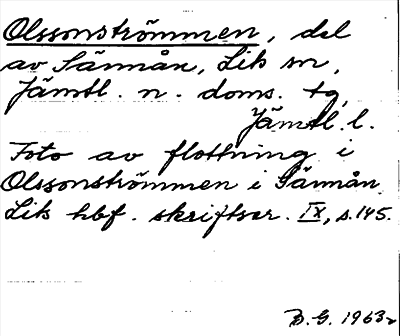 Olssonströmmen, del
av Sännån, Lik sn,
Jämtl. n. doms. tg,
Jämtl. l.
Foto av flottning i
Olssonströmmen i Sännån
Lik hbf. skriftser. IX, s. 145.
B.G. 1963